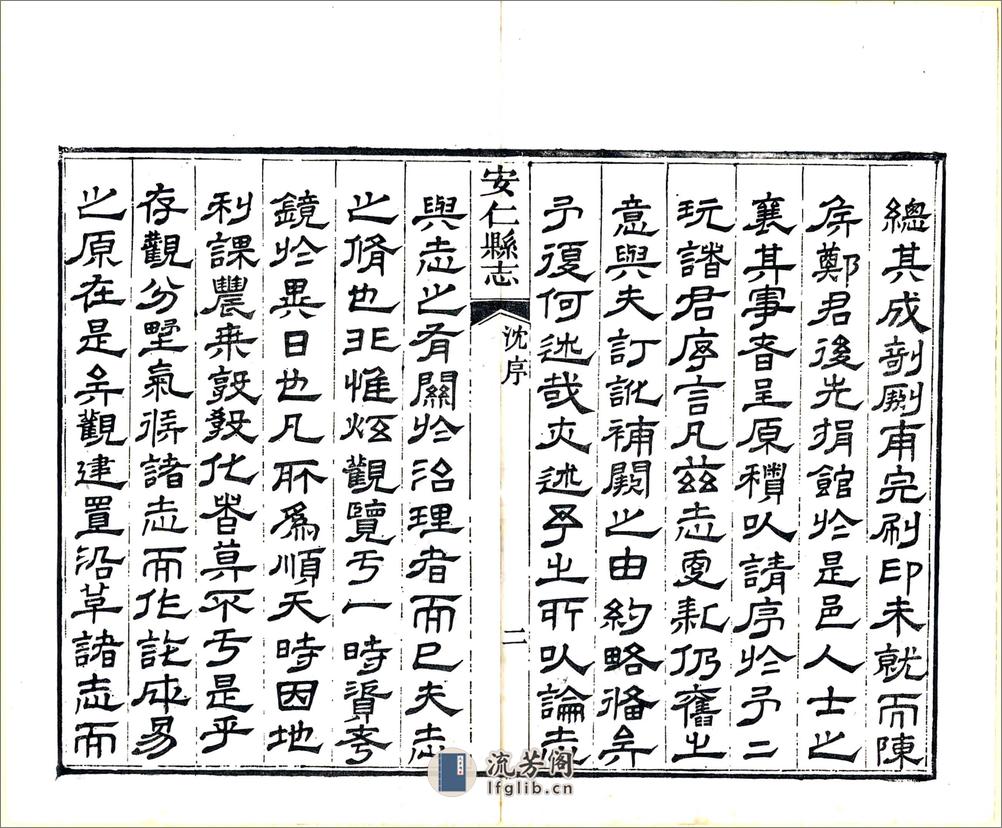 總其成剞劂甫完刷印未就而陳
侯鄭君後先捐館於是邑人士之
襄其事者呈原積以請序於予二
玩諸君序言凡茲志更新仍舊之
意與夫訂訛補闕之由約略備矣
予復何述哉夫述吾之所以論志
安仁縣志
沈序
二
與志之有關於治理者而已夫志
之脩也非惟炫觀覽于一時資考
鏡於異日也凡所為順天時因地
利課農桑敦教化者莫不于是乎
存觀分野氣將諸志而作訛成易
之原在是矣觀建置沿革諸志而
流芳阁
lfglib.cn